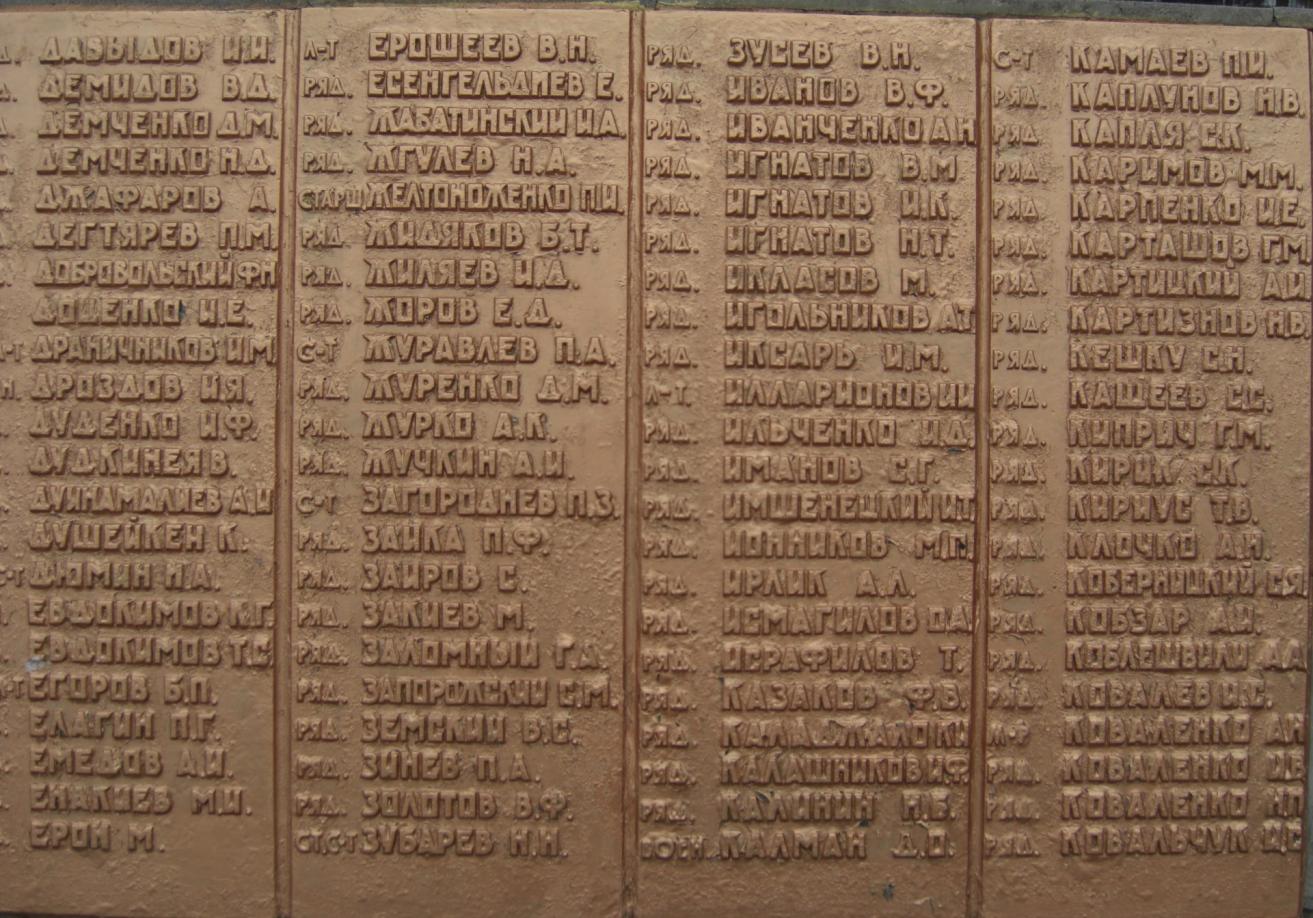 Д. ДАВЫДОВ И.И.
Д. ДЕМИДОВ В.Д.
Д. ДЕМЧЕНКО Д.М.
ДЕМЧЕНКО Н.Д.
ДЖАФАРОВ А.
ДЕГТЯРЕВ П.М.
ДОБРОВОЛЬСКИЙ Ф.Н
ДОЦЕНКО И.Е.
-Т ДРАНИЧНИКОВ И.М.
Н. ДРОЗДОВ И.Я.
ДУДЕНКО И.Ф.
ДУДКИНЕЯ В.
ДУЙНАМАЛИЕВ А.И
ДУШЕЙКЕН К.
С-Т ДЮМИН И.А.
ЕВДОКИМОВ К.Г.
ЕВДОКИМОВ Т.С.
-Т ЕГОРОВ Б.П.
ЕЛАГИН П.Г.
ЕМЕДОВ А.И.
ЕНАКИЕВ М.И.
ЕРОН М.
Л-Т ЕРОШЕЕВ В.Н.
РЯД. ЕСЕНГЕЛЬДИЕВ Е.
РЯД. ЖАБАТИНСКИЙ И.А.
РЯД. ЖГУЛЕВ Н.А.
СТАРШ ЖЕЛТОНОЖЕНКО П.И.
РЯД. ЖИДЯКОВ Б.Т.
РЯД. ЖИЛЯЕВ И.Д.
РЯД. ЖОРОВ Е.Д.
С-Т ЖУРАВЛЕВ П.А.
РЯД. ЖУРЕНКО Д.М.
РЯД. ЖУРКО А.К.
РЯД. ЖУЧКИН А.И.
С-Т ЗАГОРОДНЕВ П.З.
РЯД. ЗАЙКА П.Ф.
РЯД. ЗАИРОВ С.
РЯД. ЗАКИЕВ М.
РЯД. ЗАЛОМНЫЙ Г.Д.
РЯД. ЗАПОРОЖСКИЙ С.М.
РЯД. ЗЕМСКИЙ В.С.
РЯД. ЗИНЕВ П.А.
РЯД. ЗОЛОТОВ В.Ф.
СТ.С-Т ЗУБАРЕВ Н.Н.
РЯД. ЗУСЕВ В.Н.
РЯД. ИВАНОВ В.Ф.
РЯД. ИВАНЧЕНКО А.Н
РЯД. ИГНАТОВ В.М
РЯД. ИГНАТОВ И.К.
РЯД. ИГНАТОВ Н.Т.
РЯД. ИКЛАСОВ М.
РЯД. ИГОЛЬНИКОВ А.Т
РЯД. ИКСАРЬ И.М.
Л-Т. ИЛЛАРИОНОВ И.И
РЯД. ИЛЬЧЕНКО И.Д.
РЯД. ИМАНОВ С.Г.
РЯД. ИМШЕНЕЦКИЙ И.Т.
РЯД. ИОННИКОВ М.П.
РЯД. ИРЛИК А.Л.
РЯД. ИСМАГИЛОВ О.А.
РЯД. ИСРАФИЛОВ Т.
РЯД. КАЗАКОВ Ф.В.
РЯД. КАЛАДЖАЛО К.И
РЯД. КАЛАШНИКОВ И.Ф.
РЯД. КАЛИНИН П.Б.
КАЛМАН Д.О.
С-Т КАМАЕВ П.И.
РЯД. КАПЛУНОВ Н.В.
РЯД. КАПЛЯ С.К.
РЯД. КАРИМОВ М.М.
РЯД. КАРПЕНКО И.Е.
РЯД. КАРТАШОВ Г.М
РЯД. КАРТИЦКИЙ А.И
РЯД. КАРТИЗНОВ Н.В.
РЯД. КЕШКУ С.Н.
РЯД. КАЩЕЕВ С.С.
РЯД. КИПРИЧ Г.М.
РЯД. КИРИК С.К.
РЯД. КИРИУС Т.В.
РЯД. КЛОЧКО А.Н.
РЯД. КОБЕРНИЦКИЙ С.Я
РЯД. КОБЗАР А.И.
РЯД. КОБЛЕШВИЛИ А.А
РЯД. КОВАЛЕВ И.С.
М-Р КОВАЛЕНКО А.Н
РЯД. КОВАЛЕНКО И.В
РЯД. КОВАЛЕНКО Н.П
РЯД. КОВАЛЬЧУК И.С